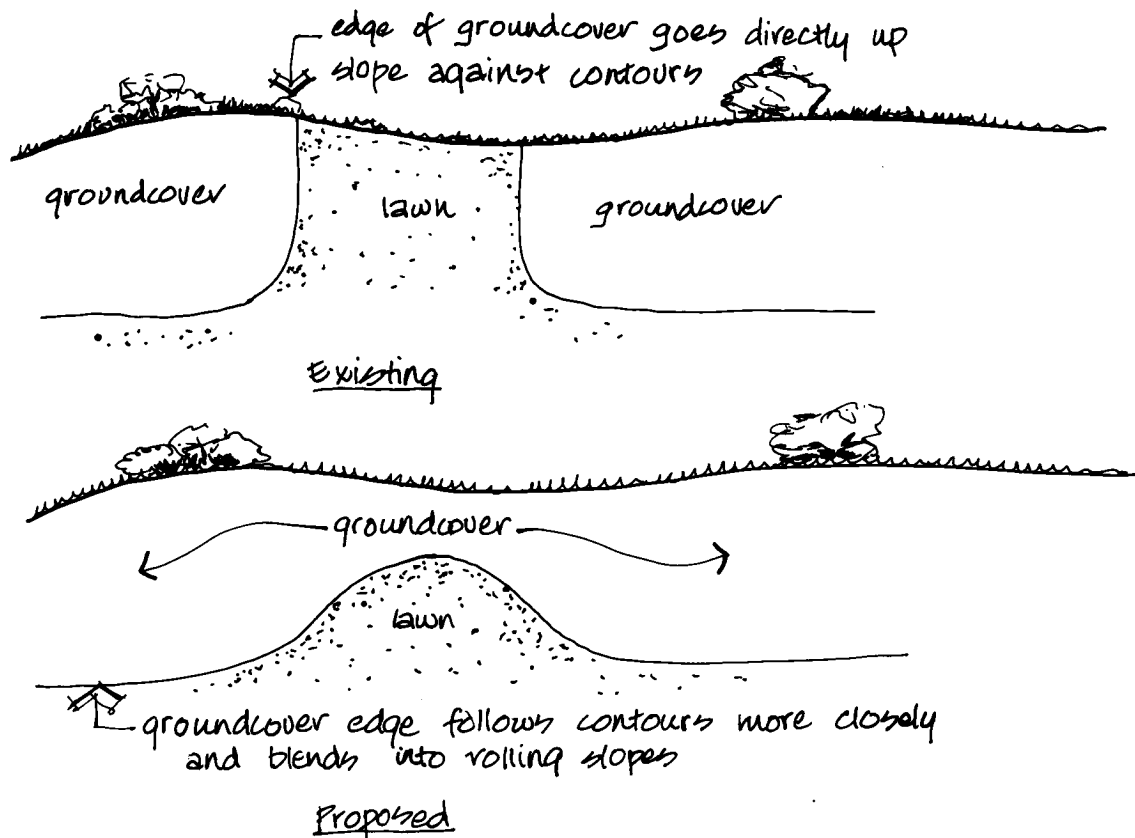 edge of groundcover goes directly up
slope against contours
groundcover
lawn
groundcover
Existing
groundcover
lawn
groundcover edge follows contours more closely
and blends into rolling slopes
Proposed